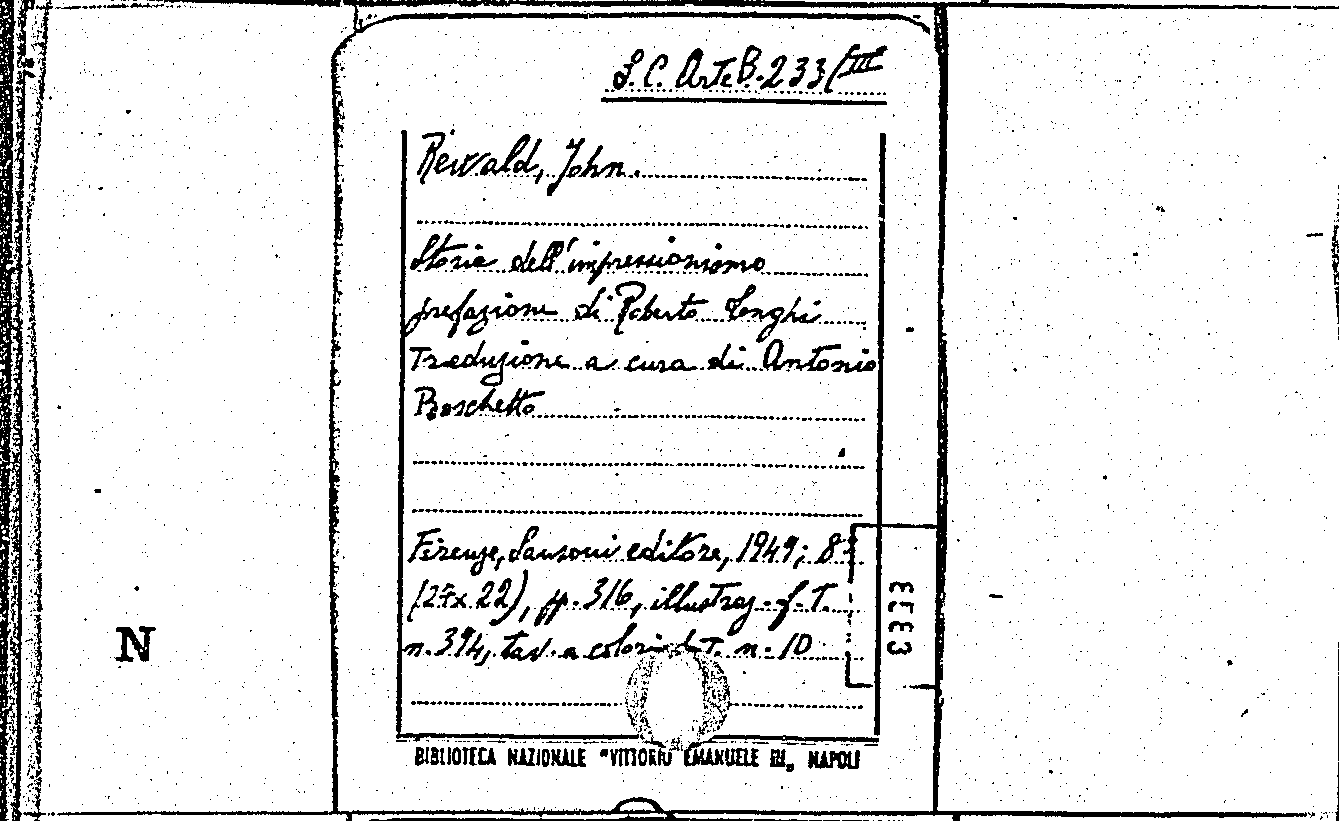 S.C. Arte B. 233/III
Rewald, John.
Storia dell'impressionismo
prefazione di Roberto Longhi
Traduzione a cura di Antonio
Boschetto
Firenze, Sansoni editore, 1949; 8°
(27x22), pp. 316, illustraz. f. T.
n. 394, tav. a colori f. T. n. 10
N
BIBLIOTECA NAZIONALE "VITTORIO EMANUELE III„ NAPOLI